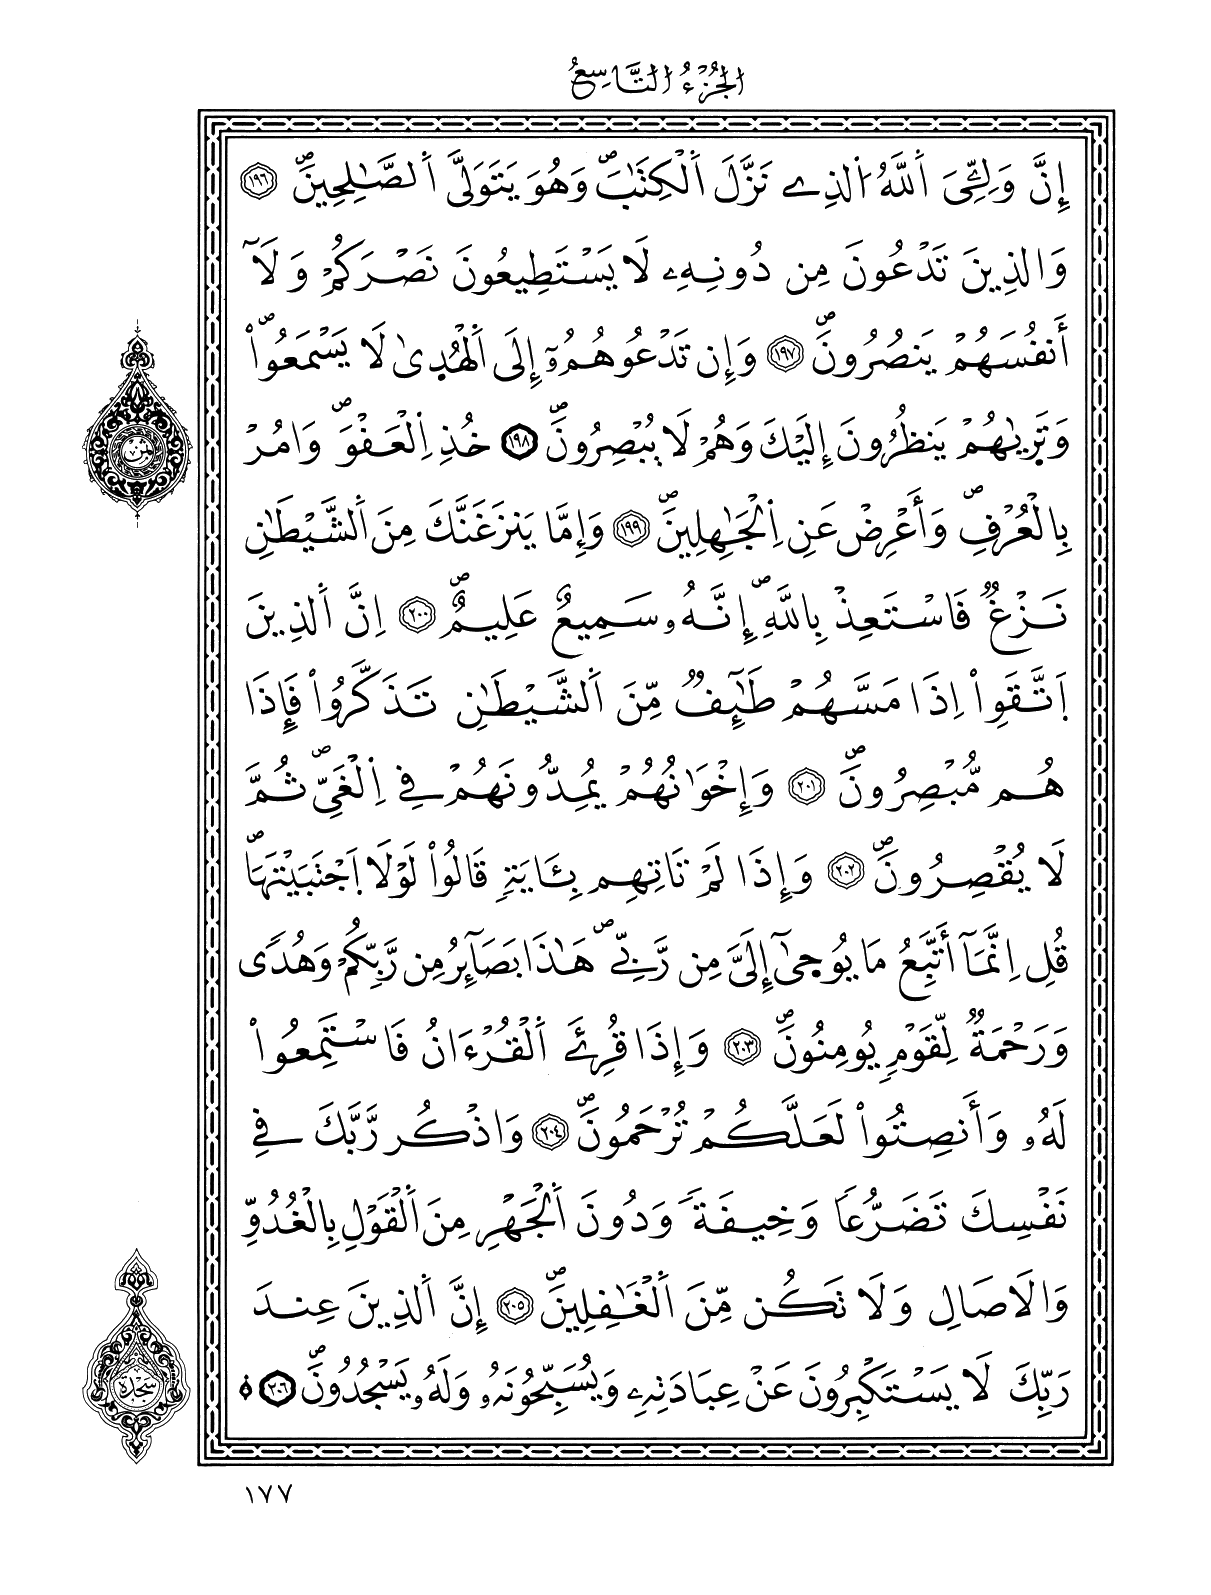 الجُزْءُ التَّاسِعُ
إِنَّ وَلِـِّۧىَ اَ۬للَّهُ اُ۬لذِے نَزَّلَ اَ۬لْكِتَٰبَۖ وَهُوَ يَتَوَلَّى اَ۬لصَّٰلِحِينَۖ ١٩٦
وَالذِينَ تَدْعُونَ مِن دُونِهِۦ لَا يَسْتَطِيعُونَ نَصْرَكُمْ وَلَآ
أَنفُسَهُمْ يَنصُرُونَۖ ١٩٧ وَإِن تَدْعُوهُمُۥٓ إِلَى اَ۬لْهُد۪ىٰ لَا يَسْمَعُواْۖ
وَتَر۪يٰهُمْ يَنظُرُونَ إِلَيْكَ وَهُمْ لَا يُبْصِرُونَۖ ١٩٨ خُذِ اِ۬لْعَفْوَۖ وَامُرْ
بِالْعُرْفِۖ وَأَعْرِضْ عَنِ اِ۬لْجَٰهِلِينَۖ ١٩٩ وَإِمَّا يَنزَغَنَّكَ مِنَ اَ۬لشَّيْطَٰنِ
نَزْغٞ فَاسْتَعِذْ بِاللَّهِۖ إِنَّهُۥ سَمِيعٌ عَلِيمٌۖ ٢٠٠ اِنَّ اَ۬لذِينَ
اَ۪تَّقَواْ اِذَا مَسَّهُمْ طَٰٓئِفٞ مِّنَ اَ۬لشَّيْطَٰنِ تَذَكَّرُواْ فَإِذَا
هُم مُّبْصِرُونَۖ ٢٠١ وَإِخْوَٰنُهُمْ يُمِدُّونَهُمْ فِے اِ۬لْغَيِّۖ ثُمَّ
لَا يُقْصِرُونَۖ ٢٠٢ وَإِذَا لَمْ تَاتِهِم بِـَٔايَةٖ قَالُواْ لَوْلَا اَ۪جْتَبَيْتَهَاۖ
قُلِ اِنَّمَآ أَتَّبِعُ مَا يُوح۪ىٰٓ إِلَيَّ مِن رَّبِّےۖ هَٰذَا بَصَآئِرُ مِن رَّبِّكُمْ وَهُدًى
وَرَحْمَةٞ لِّقَوْمٖ يُومِنُونَۖ ٢٠٣ وَإِذَا قُرِۓَ اَ۬لْقُرْءَانُ فَاسْتَمِعُواْ
لَهُۥ وَأَنصِتُواْ لَعَلَّكُمْ تُرْحَمُونَۖ ٢٠٤ وَاذْكُر رَّبَّكَ فِے
نَفْسِكَ تَضَرُّعاٗ وَخِيفَةٗ وَدُونَ اَ۬لْجَهْرِ مِنَ اَ۬لْقَوْلِ بِالْغُدُوِّ
وَالَاصَالِ وَلَا تَكُن مِّنَ اَ۬لْغَٰفِلِينَۖ ٢٠٥ إِنَّ اَ۬لذِينَ عِندَ
رَبِّكَ لَا يَسْتَكْبِرُونَ عَنْ عِبَادَتِهِۦ وَيُسَبِّحُونَهُۥ وَلَهُۥ يَسْجُدُونَۖ ٢٠٦
ثمن
سجدة
١٧٧